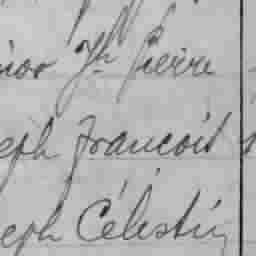 Jh Pierre
eph Francois
eph Célestin